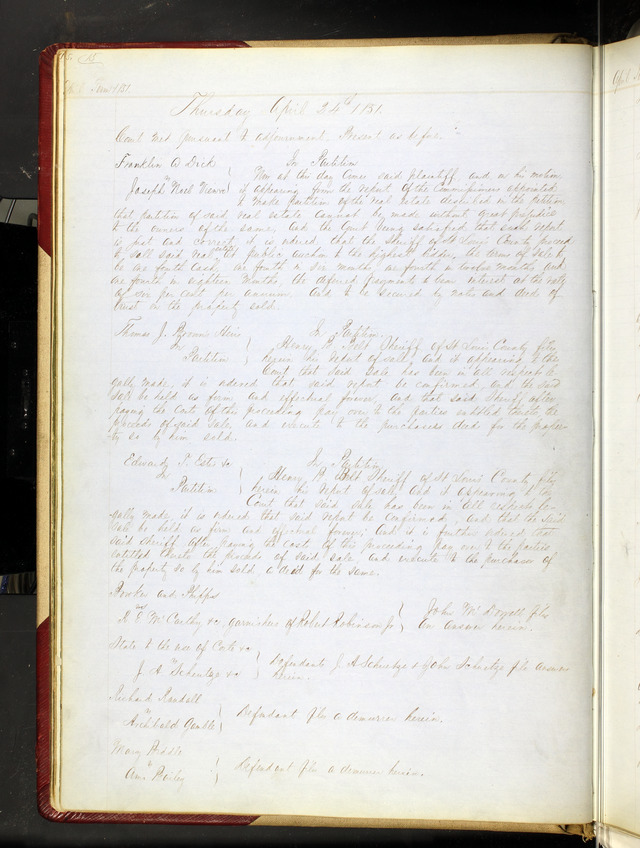 Thursday April 24th 1851.
Court met pursuant to adjournment. Present as before.
Franklin A Dick
vs
Joseph Noel
In Partition
Now at this day comes said plaintiff, and on his motion
it appearing from the report of the Commissioners appointed
to make partition of the real estate described in the petition
that partition of said real estate cannot be made without great prejudice
to the owners of the same, and the Court being satisfied that such report
is just and correct, it is ordered that the Sheriff of St Louis County proceed
to sell said real estate at public auction to the highest bidder, the terms of sale to
be one fourth cash, one fourth in six months one fourth in twelve months and
one fourth in eighteen months, the deferred payments to bear interest at the rate
of six per cent per annum, and to be secured by notes and deeds of
trust on the property sold.
Thomas J. Heirs
In
Partition
In Partition
Henry Belt Sheriff of St Louis County files
herein his report of sale, and it appearing to the
Court that said sale has been in all respects le-
gally made, it is ordered that said report be confirmed, and the said
sale be held as firm and effectual forever, and that said Sheriff after
paying the costs of this proceeding pay over to the parties entitled thereto the
proceeds of said sale, and execute to the purchasers deeds for the proper-
ty so by him sold.
Edward T. Estes &c
In
Partition
In Partition
Henry Belt Sheriff of St Louis County files
herein his report of sale, and it appearing to the
Court that said sale has been in all respects le-
gally made it is ordered that said report be confirmed, and that the said
sale be held as firm and effectual forever, and it is further ordered that
said Sheriff after paying the costs of this proceeding pay over to the parties
entitled thereto the proceeds of said sale and execute to the purchaser of
the property so by him sold a deed for the same.
and Phipps
vs
McCarthy &c garnishees of Robert Robinson Jr
John McDowell files
an answer herein.
State to the use of Coste &c
vs
J. A Scheutze &c
Defendants J. A Scheutze & John Scheutze file answer
herein.
Richard Randall
vs
Archibald Gamble
Defendant files a demurrer herein.
Mary Biddle
vs
Bailey
Defendant files a demurrer herein.